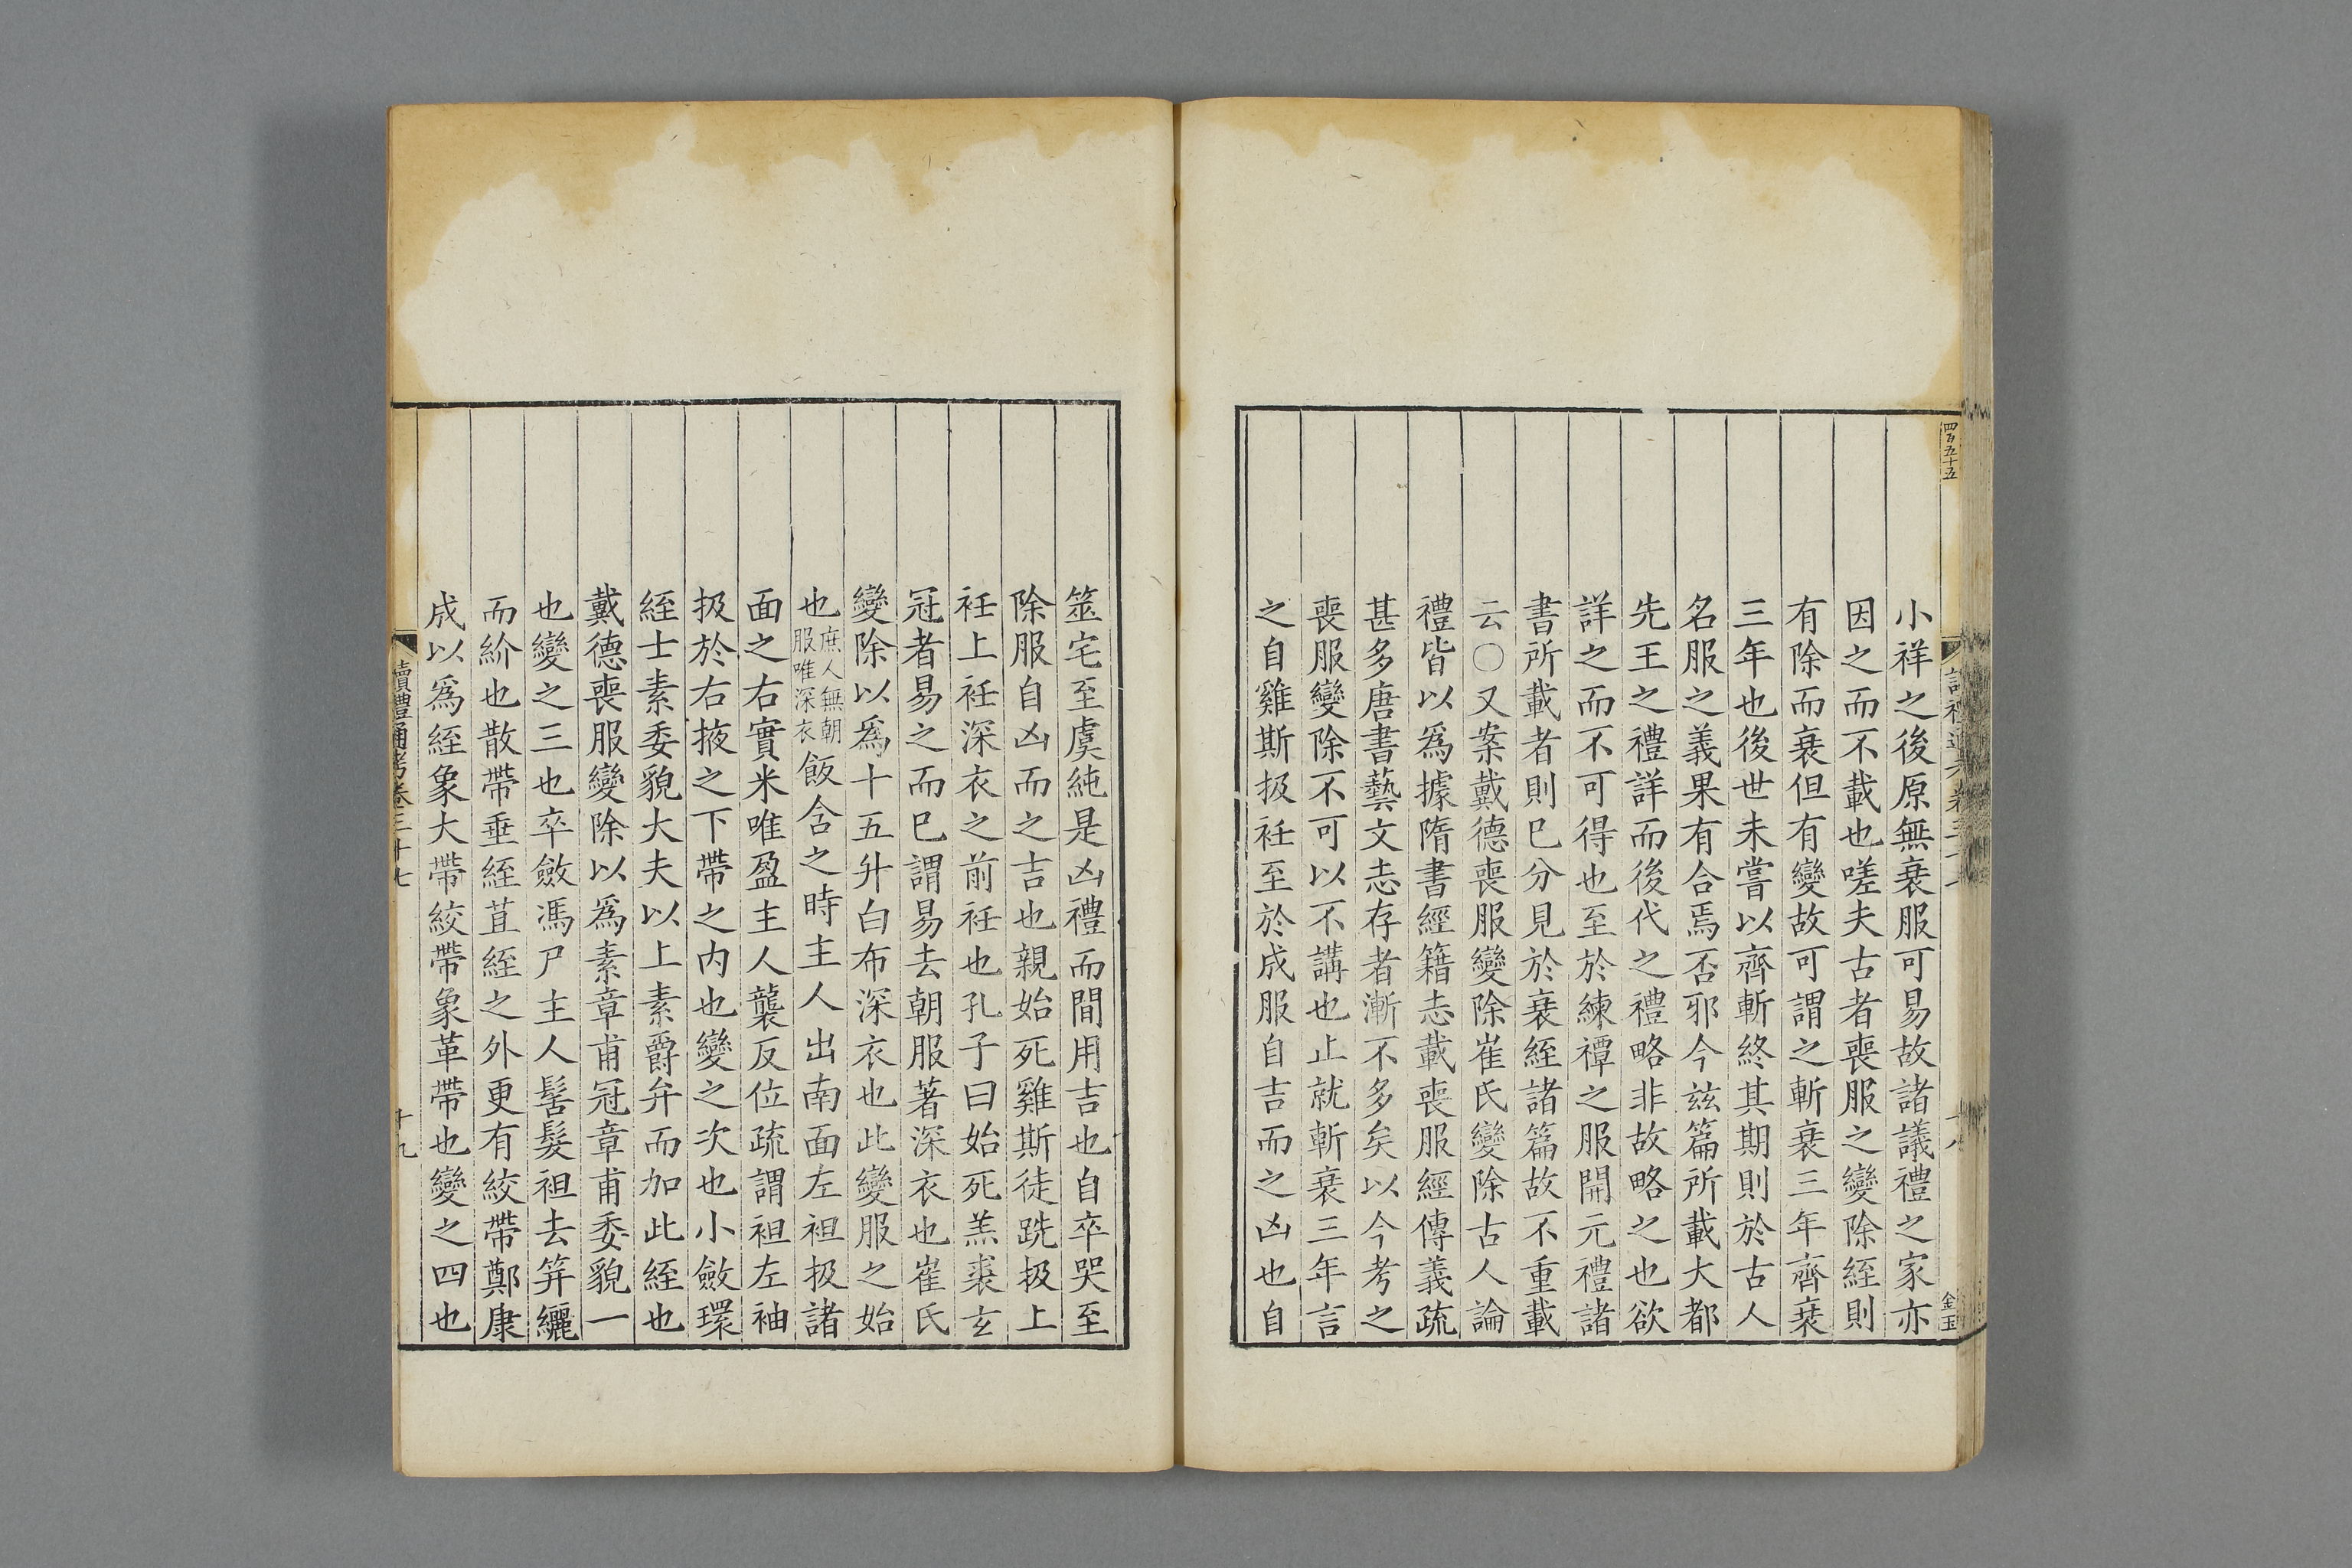 四百五十五
金玉
小祥之後原無衰服可易故諸議禮之家亦
因之而不載也嗟夫古者喪服之變除絰則
有除而衰但有變故可謂之斬衰三年齊衰
三年也後世未嘗以齊斬終其期則於古人
名服之義果有合焉否邪今茲篇所載大都
先王之禮詳而後代之禮略非故略之也欲
詳之而不可得也至於練禫之服開元禮諸
書所載者則已分見於衰絰諸篇故不重載
云〇又案戴德喪服變除崔氏變除古人論
禮皆以爲據隋書經籍志載喪服經傳義疏
甚多唐書藝文志存者漸不多矣以今考之
喪服變除不可以不講也止就斬衰三年言
之自雞斯扱衽至於成服自吉而之凶也自
筮宅至虞純是凶禮而間用吉也自卒哭至
除服自凶而之吉也親始死雞斯徒跣扱上
衽上衽深衣之前衽也孔子曰始死羔裘玄
冠者易之而已謂易去朝服著深衣也崔氏
變除以爲十五升白布深衣也此變服之始
也庶人無朝服唯深衣飯含之時主人出南面左袒扱諸
面之右實米唯盈主人襲反位疏謂袒左袖
扱於右掖之下帶之内也變之次也小斂環
絰士素委貌大夫以上素爵弁而加此絰也
戴德喪服變除以爲素章甫冠章甫委貌一
也變之三也卒斂馮尸主人髺髮袒去笄纚
而紒也散帶垂絰苴絰之外更有絞帶鄭康
成以爲絰象大帶絞帶象革帶也變之四也
讀禮通考卷三十七
十九